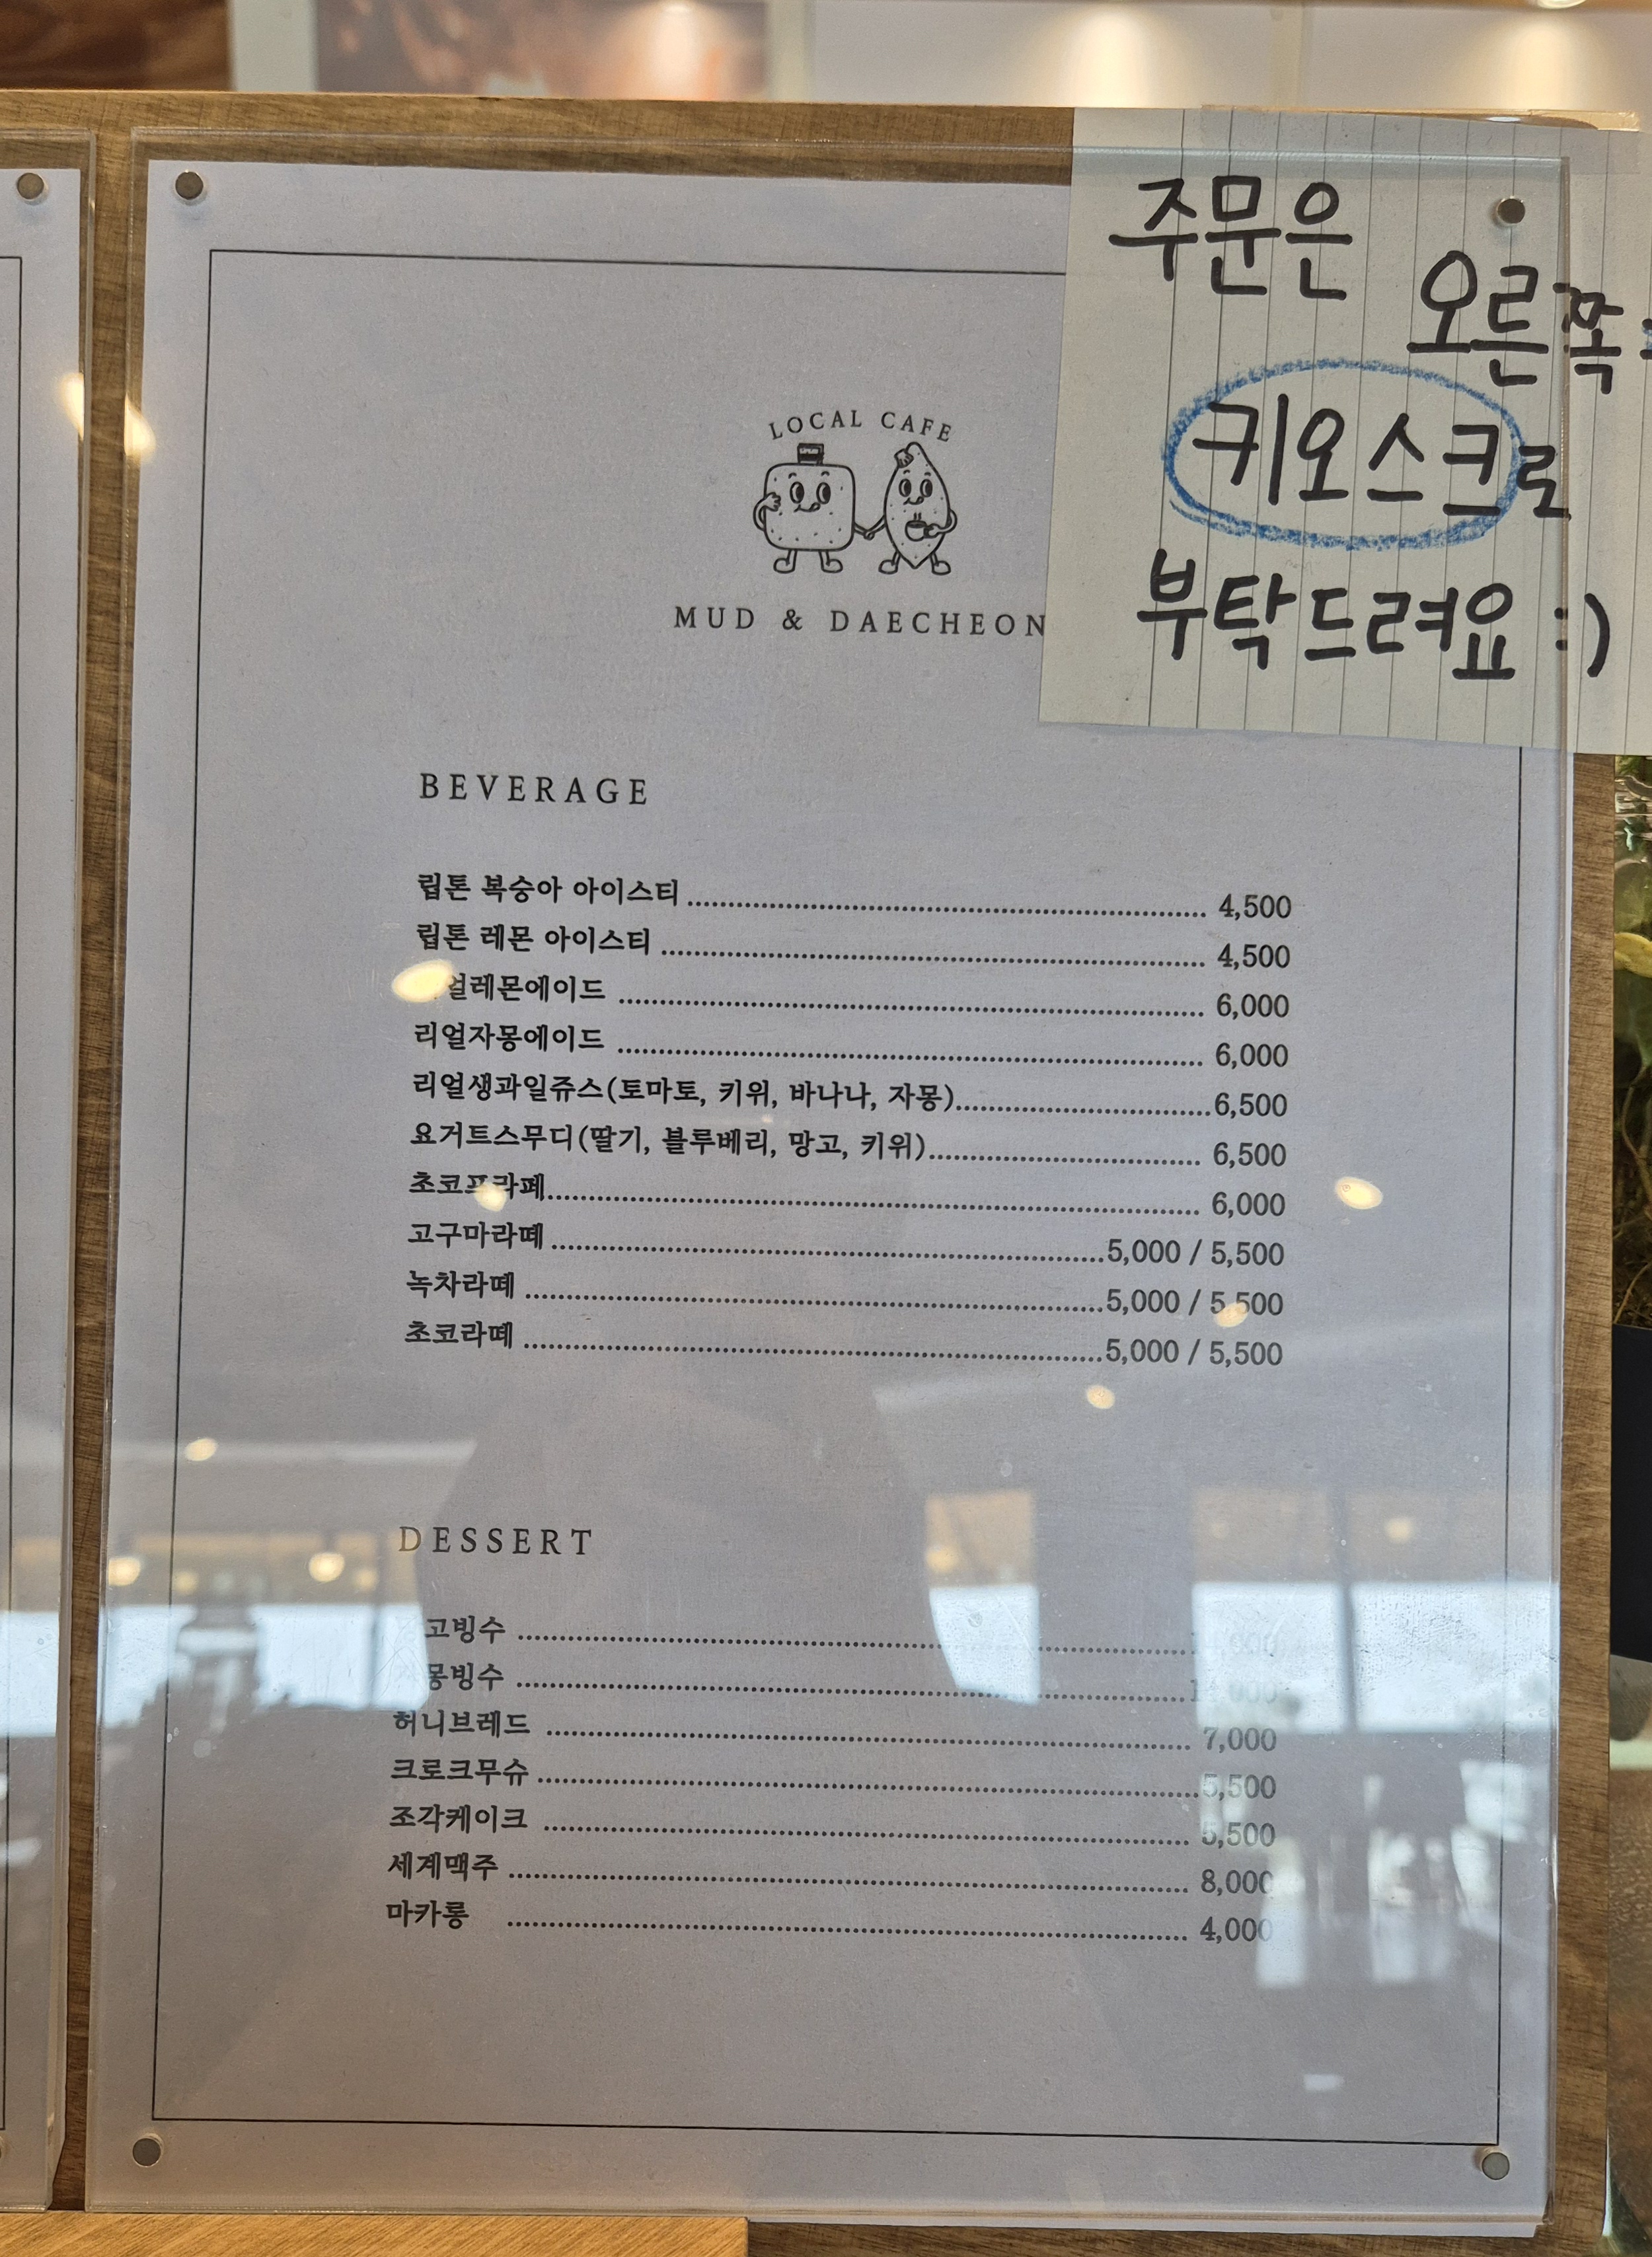 주문은
오른쪽
키오스크로
부탁드려요 :)
LOCAL CAFE
MUD & DAECHEON
BEVERAGE
립톤 복숭아 아이스티 4,500
립톤 레몬 아이스티 4,500
얼레몬에이드 6,000
리얼자몽에이드 6,000
리얼생과일쥬스(토마토, 키위, 바나나, 자몽) 6,500
요거트스무디(딸기, 블루베리, 망고, 키위) 6,500
초코프라페 6,000
고구마라떼 5,000 / 5,500
녹차라떼 5,000 / 5,500
초코라떼 5,000 / 5,500
DESSERT
고빙수
몽빙수
허니브레드 7,000
크로크무슈 5,500
조각케이크 5,500
세계맥주 8,000
마카롱 4,000